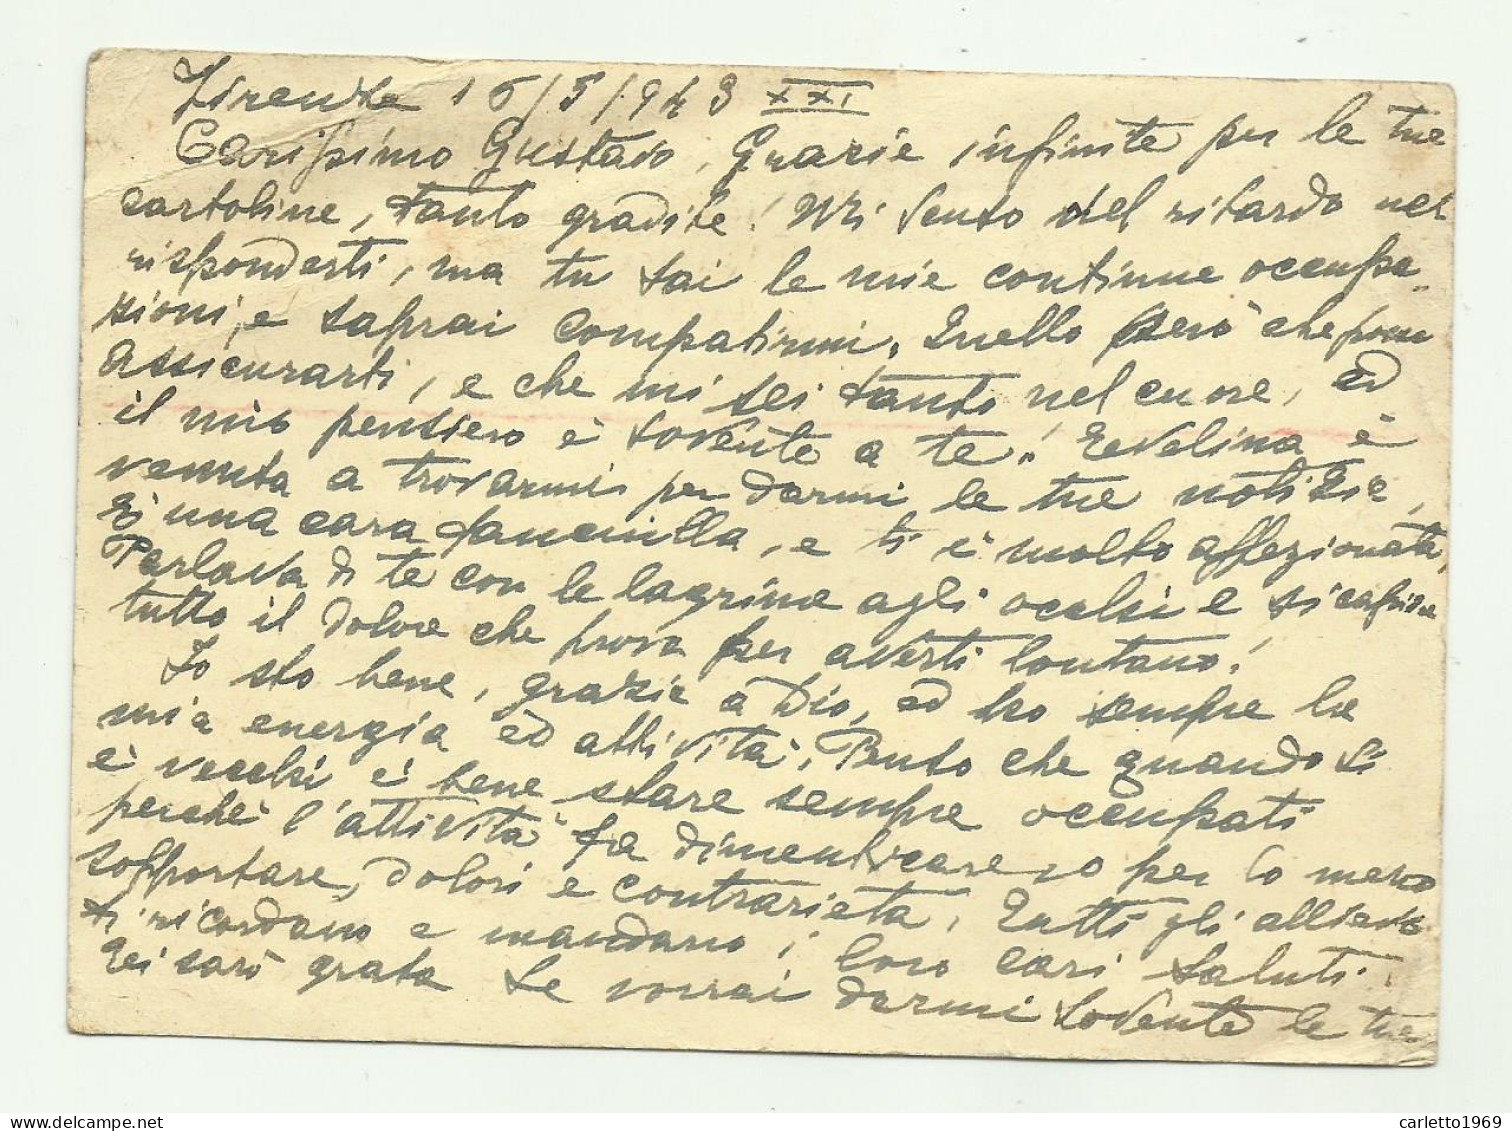 Firenze 16/5/1943 XXI
Carissimo Gustavo, Grazie infinite per le tue
cartoline, tanto gradite! Mi scuso del ritardo nel
risponderti, ma tu sai le mie continue occupa-
zioni, e saprai compatirmi. Quello però che posso
assicurarti, e che mi sei tanto nel cuore, ed
il mio pensiero è sovente a te! Evelina è
venuta a trovarmi per darmi le tue notizie,
È una cara fanciulla, e ti è molto affezionata,
Parlava di te con le lagrime agli occhi e si capisce
tutto il dolore che prova per averti lontano!
Io sto bene, grazie a Dio, ed ho sempre la
mia energia ed attività, Penso che quando si
è vecchi è bene stare sempre occupati
perchè l'attività fa dimenticare o per lo meno
sopportare, dolori e contrarietà, Tutti gli allievi
ti ricordano e mandano i loro cari saluti.
Ti sarò grata se vorrai darmi sovente le tue
carletto1969